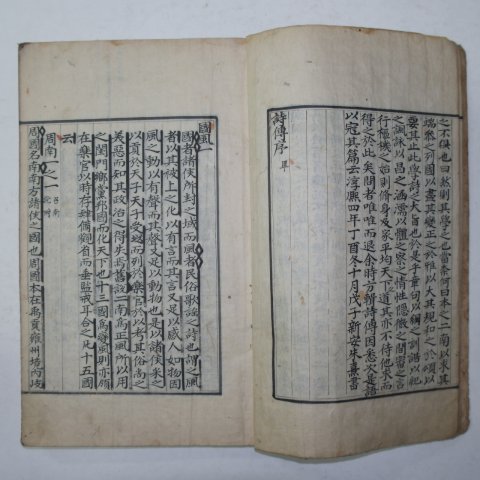 之不　也曰然則其學之也當奈何曰本之二南以求其
端參之列國以盡其變正之於雅以大其規和之於頌以
要其止此學詩之大旨也於是乎章句以綱之訓詁以紀
之諷詠以昌之涵濡以體之察之情性隱微之間審之言
行樞機之始則修身及家平均天下之道其亦不待他求而
得之於此矣問者唯唯而退余時方輯詩傳因悉次是語
以冠其篇云淳熙四年丁酉冬十月戊子新安朱熹書
詩傳序
國風一
國者諸侯所封之域而風者民俗歌謠之詩也謂之風
者以其被上之化以有言而其言又足以感人如物因
風之動以有聲而其聲又足以動物也是以諸侯采之
以貢於天子天子受之而列於樂官於以考其俗尚之
美惡而知其政治之得失焉舊說二南爲正風所以用
之閨門鄕黨邦國而化天下也十三國爲變風則亦領
在樂官以時存肄備觀省而垂監戒耳合之凡十五國
云
周南一之一
周國名南南方諸侯之國也周國本在禹貢雍州境內岐